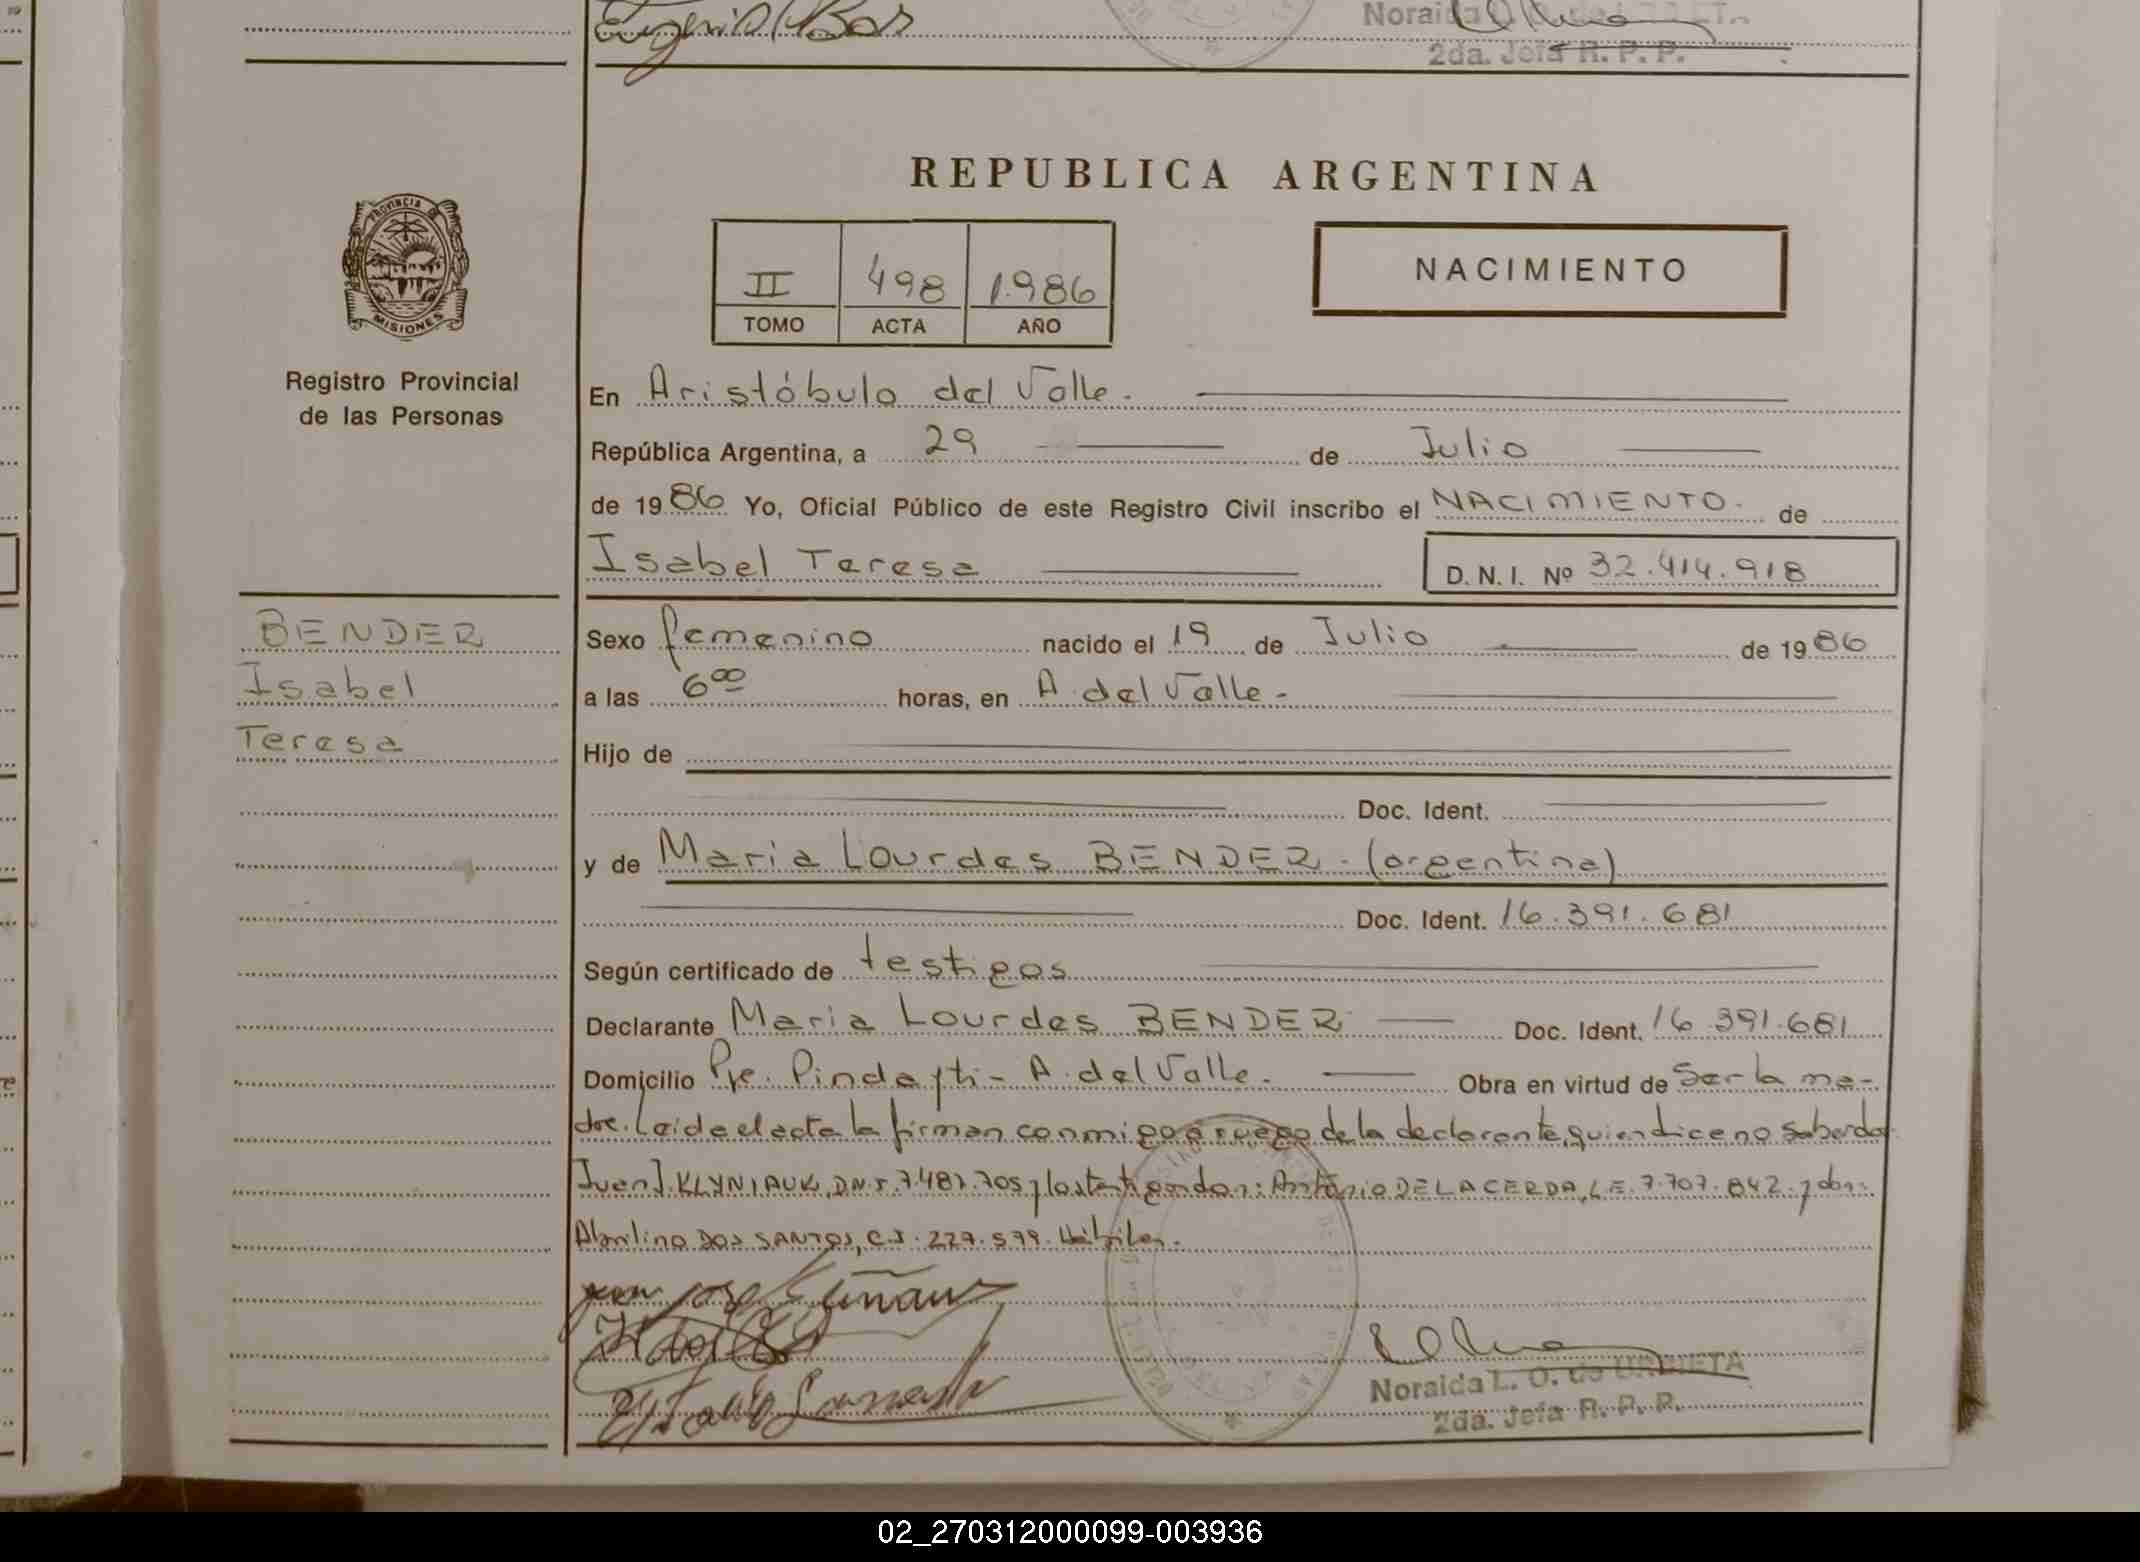 Noraida
2da. Jefa R. P. P.
REPUBLICA ARGENTINA
PROVINCIA DE
MISIONES
Registro Provincial
de las Personas
II 498 1.986
TOMO ACTA AÑO
NACIMIENTO
En Aristóbulo del Valle.
República Argentina, a 29 de Julio
de 1986 Yo, Oficial Público de este Registro Civil inscribo el NACIMIENTO. de
Isabel Teresa D. N. I. Nº 32.414.918
BENDER
Isabel
Teresa
Sexo femenino nacido el 19 de Julio de 1986
a las 6⁰⁰ horas, en A. del Valle.-
Hijo de
Doc. Ident.
y de Maria Lourdes BENDER. (argentina)
Doc. Ident. 16.391.681
Según certificado de testigos
Declarante Maria Lourdes BENDER Doc. Ident. 16.391.681
Domicilio Pje. Pindayti - A. del Valle. Obra en virtud de Ser la ma-
dre. Leida el acta la firman conmigo a ruego de la declarante, quien dice no saber do
Juan J. KLYNIAUK, DNI. 7.487.705 y los testigos don: Antonio DE LA CERDA, L.E. 7.707.842. y don:
DOS SANTOS, C.I. 227.599. Hábiles.
Noraida L. O. de URRIETA
2da. Jefa R. P. P.
02_270312000099-003936